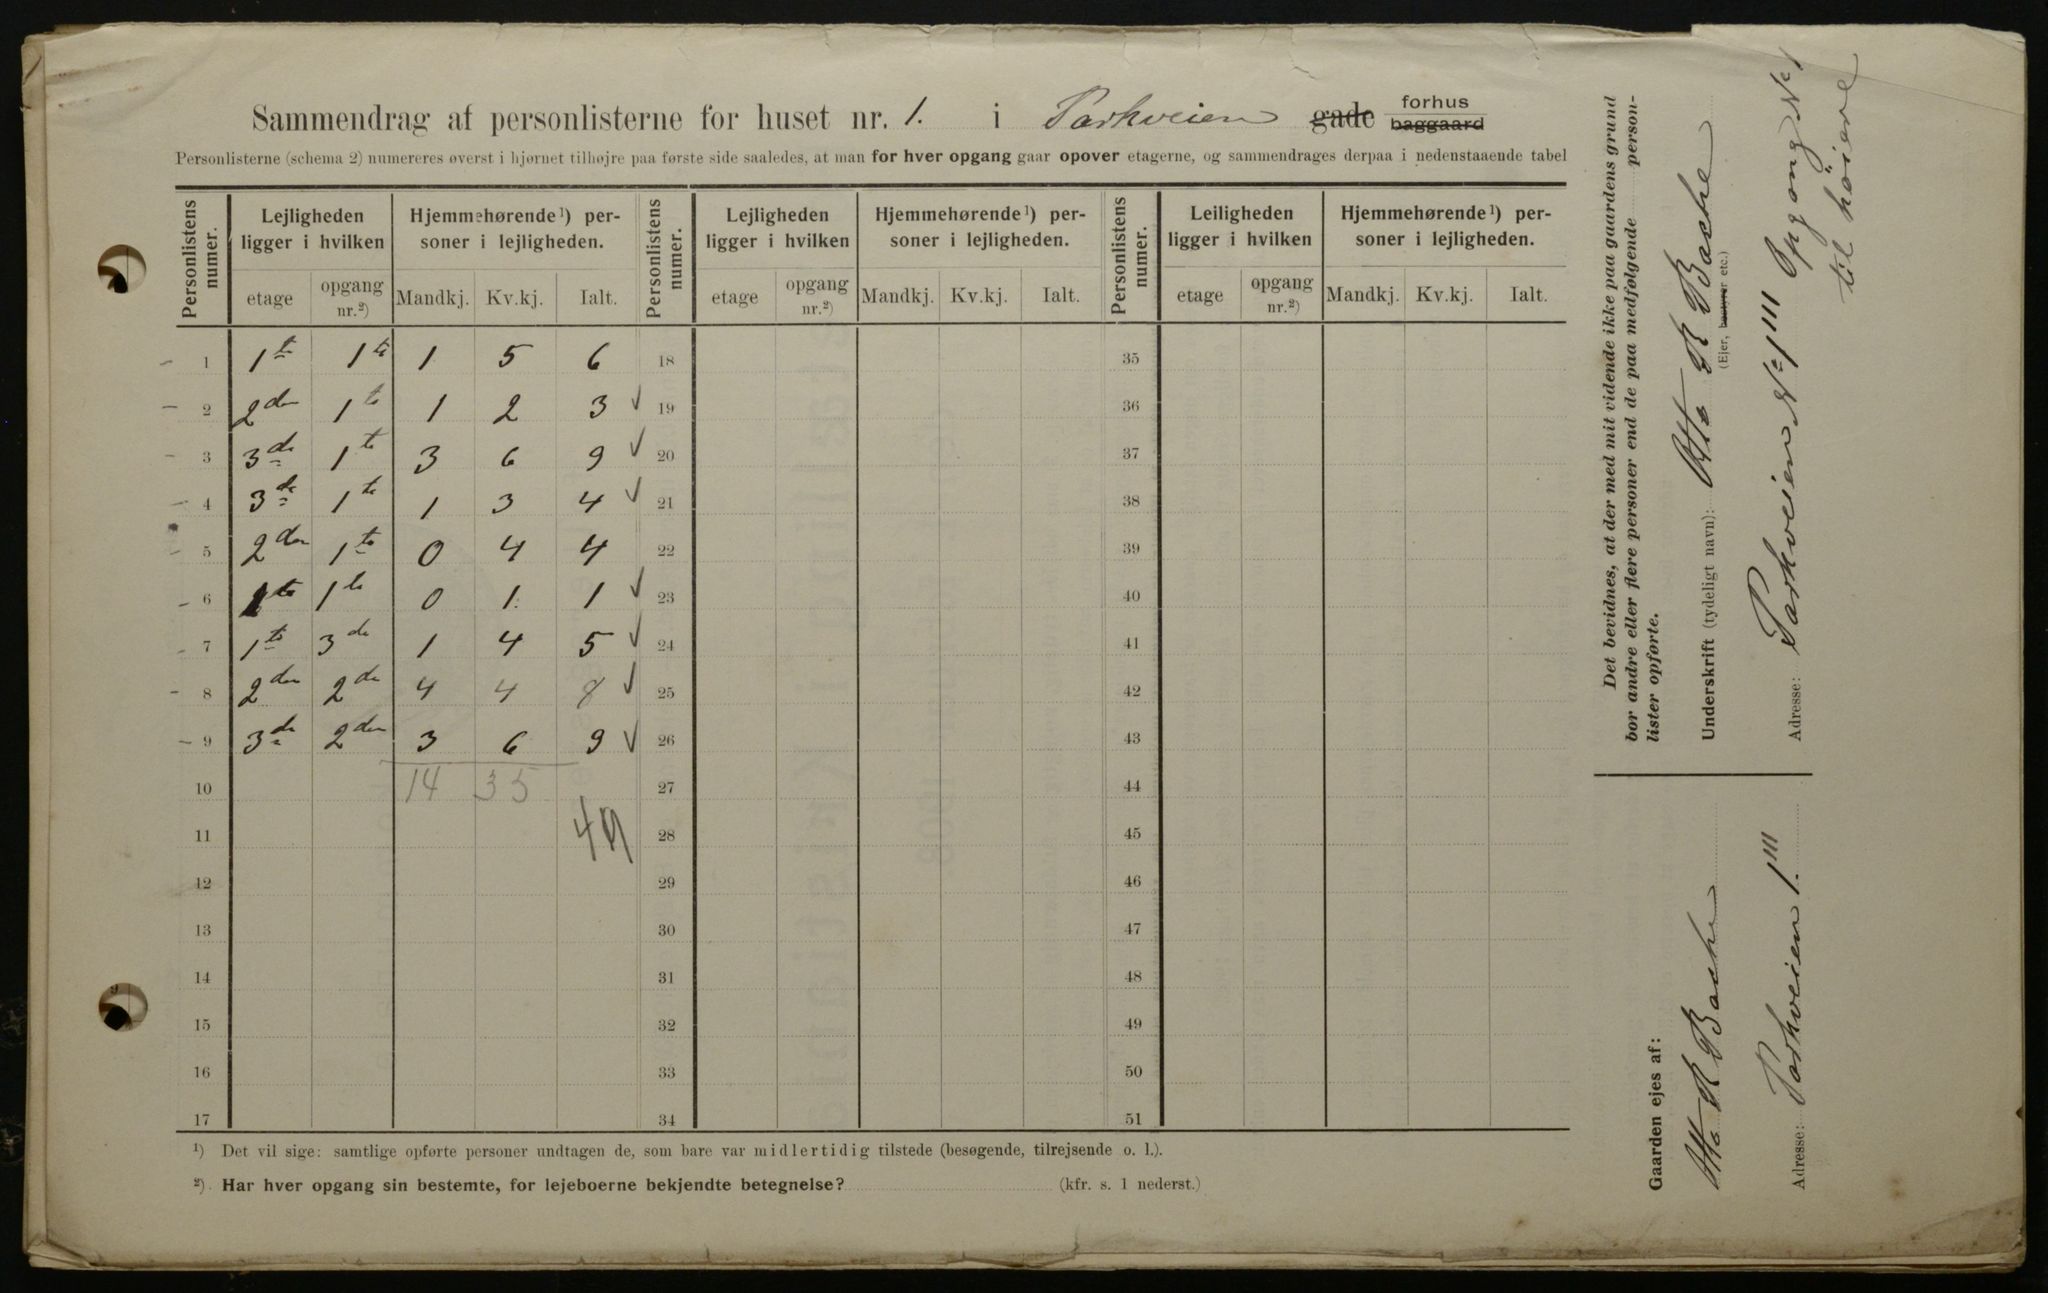 Sammendrag af personlisterne for huset nr. 1. i Parkveien gade forhus baggaard
Personlisterne (schema 2) numereres øverst i hjørnet tilhøjre paa første side saaledes, at man for hver opgang gaar opover etagerne, og sammendrages derpaa i nedenstaaende tabel
Personlistens numer. Lejligheden ligger i hvilken Hjemmehørende¹) personer i lejligheden. Personlistens numer. Lejligheden ligger i hvilken Hjemmehørende¹) personer i lejligheden. Personlistens numer. Leiligheden ligger i hvilken Hjemmehørende¹) personer i lejligheden.
etage opgang nr.²) Mandkj. Kv.kj. Ialt. etage opgang nr.²) Mandkj. Kv.kj. Ialt. etage opgang nr.²) Mandkj. Kv.kj. Ialt.
- 1 1te 1te 1 5 6 18 35
- 2 2den 1te 1 2 3 ✓ 19 36
- 3 3de 1te 3 6 9 ✓ 20 37
- 4 3de 1te 1 3 4 ✓ 21 38
- 5 2den 1te 0 4 4 22 39
- 6 1te 1te 0 1. 1 ✓ 23 40
- 7 1te 3de 1 4 5 ✓ 24 41
- 8 2den 2de 4 4 8 ✓ 25 42
- 9 3de 2den 3 6 9 ✓ 26 43
10 14 35 27 44
11 49 28 45
12 29 46
13 30 47
14 31 48
15 32 49
16 33 50
17 34 51
¹) Det vil sige: samtlige opførte personer undtagen de, som bare var midlertidig tilstede (besøgende, tilrejsende o. l.).
²) Har hver opgang sin bestemte, for lejeboerne bekjendte betegnelse? (kfr. s. 1 nederst.)
Det bevidnes, at der med mit vidende ikke paa gaardens grund
bor andre eller flere personer end de paa medfølgende personlister opførte.
Underskrift (tydeligt navn): Otto R Bache
(Ejer, bestyrer etc.)
Adresse: Parkveien No 1 III Opgang No 1
til høire
Gaarden ejes af:
Otto R Bache
Adresse: Parkveien 1. III